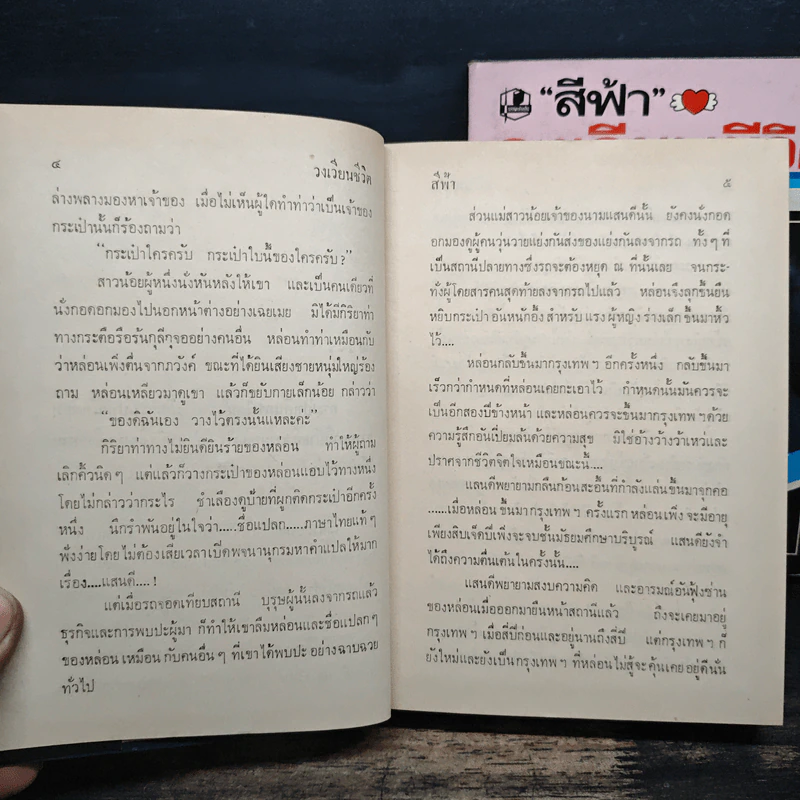 "สีฟ้า"
๔ วงเวียนชีวิต
ล่างพลางมองหาเจ้าของ เมื่อไม่เห็นผู้ใดทำท่าว่าเป็นเจ้าของ
กระเป๋านั้นก็ร้องถามว่า
"กระเป๋าใครครับ กระเป๋าใบนี้ของใครครับ?"
สาวน้อยผู้หนึ่งนั่งหันหลังให้เขา และเป็นคนเดียวที่
นั่งกอดอกมองไปนอกหน้าต่างอย่างเฉยเมย มิได้มีกิริยาท่า
ทางกระตือรือร้นกุลีกุจออย่างคนอื่น หล่อนทำท่าเหมือนกับ
ว่าหล่อนเพิ่งตื่นจากภวังค์ ขณะที่ได้ยินเสียงชายหนุ่มใหญ่ร้อง
ถาม หล่อนเหลียวมาดูเขา แล้วก็ขยับกายเล็กน้อย กล่าวว่า
"ของดิฉันเอง วางไว้ตรงนั้นแหละค่ะ"
กิริยาท่าทางไม่ยินดียินร้ายของหล่อน ทำให้ผู้ถาม
เลิกคิ้วนิดๆ แต่แล้วก็วางกระเป๋าของหล่อนแอบไว้ทางหนึ่ง
โดยไม่กล่าวว่ากระไร ชำเลืองดูป้ายที่ผูกติดกระเป๋าอีกครั้ง
หนึ่ง นึกรำพันอยู่ในใจว่า.....ชื่อแปลก.....ภาษาไทยแท้ๆ
ฟังง่ายโดยไม่ต้องเสียเวลาเปิดพจนานุกรมหาคำแปลให้มาก
เรื่อง....แสนดี....!
แต่เมื่อรถจอดเทียบสถานี บุรุษผู้นั้นลงจากรถแล้ว
ธุรกิจและการพบปะผู้มา ก็ทำให้เขาลืมหล่อนและชื่อแปลกๆ
ของหล่อน เหมือนกับคนอื่นๆ ที่เขาได้พบปะอย่างฉาบฉวย
ทั่วไป
สีฟ้า ๕
ส่วนแม่สาวน้อยเจ้าของนามแสนดีนั้น ยังคงนั่งกอด
อกมองดูผู้คนวุ่นวายแย่งกันส่งของแย่งกันลงจากรถ ทั้งๆ ที่
เป็นสถานีปลายทางซึ่งรถจะต้องหยุด ณ ที่นั้นเลย จนกระ-
ทั่งผู้โดยสารคนสุดท้ายลงจากรถไปแล้ว หล่อนจึงลุกขึ้นยืน
หยิบกระเป๋า อันหนักอึ้ง สำหรับ แรง ผู้หญิง ร่างเล็ก ขึ้นมาหิ้ว
ไว้....
หล่อนกลับขึ้นมากรุงเทพฯ อีกครั้งหนึ่ง กลับขึ้นมา
เร็วกว่ากำหนดที่หล่อนเคยกะเอาไว้ กำหนดนั้นมันควรจะ
เป็นอีกสองปีข้างหน้า และหล่อนควรจะขึ้นมากรุงเทพฯ ด้วย
ความรู้สึกอันเปี่ยมล้นด้วยความสุข มิใช่อ้างว้างว้าเหว่และ
ปราศจากชีวิตจิตใจเหมือนขณะนี้....
แสนดีพยายามกลืนก้อนสะอื้นที่กำลังแล่นขึ้นมาจุกคอ
......เมื่อหล่อน ขึ้นมา กรุงเทพฯ ครั้งแรก หล่อนเพิ่งจะมีอายุ
เพียงสิบเจ็ดปีเพิ่งจะจบชั้นมัธยมศึกษาบริบูรณ์ แสนดียังจำ
ได้ถึงความตื่นเต้นในครั้งนั้น....
แสนดีพยายามสงบความคิด และอารมณ์อันฟุ้งซ่าน
ของหล่อนเมื่อออกมายืนหน้าสถานีแล้ว ถึงจะเคยมาอยู่
กรุงเทพฯ เมื่อสี่ปีก่อนและอยู่นานถึงสี่ปี แต่กรุงเทพฯ ก็
ยังใหม่และยังเป็นกรุงเทพฯ ที่หล่อนไม่สู้จะคุ้นเคยอยู่ดีนั่น